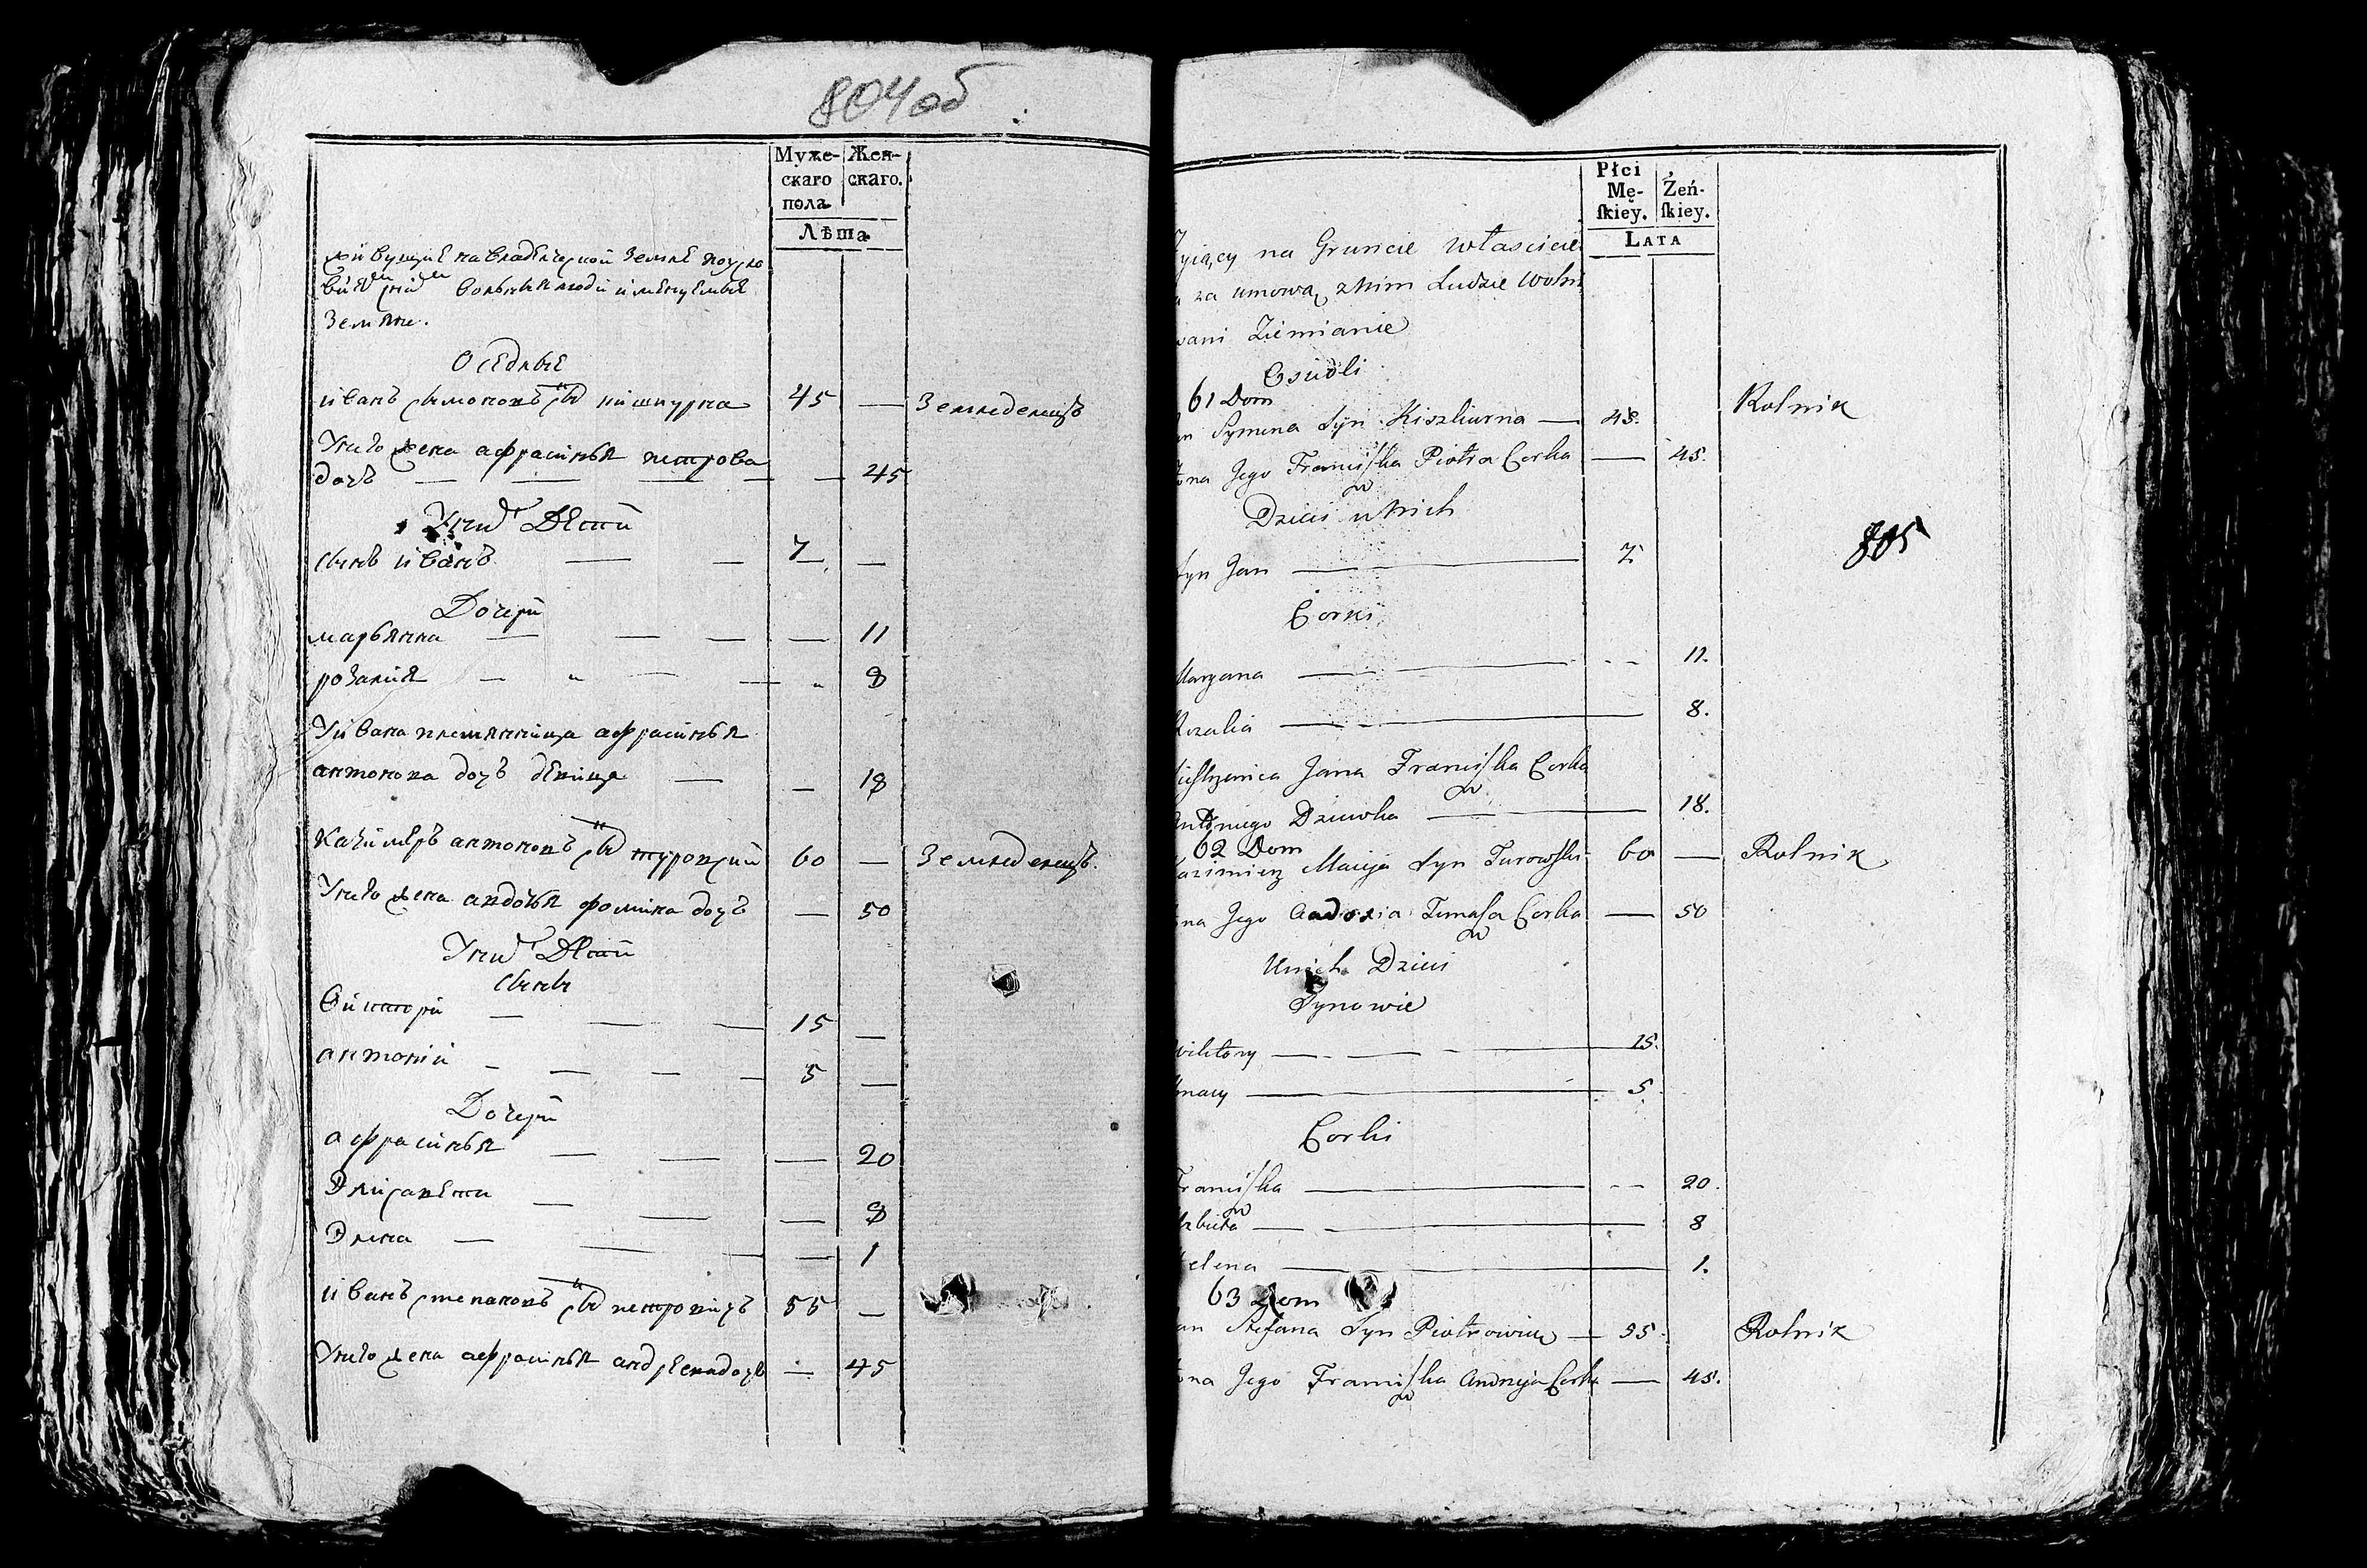 804об
Муже-
скаго
пола
Жен-
скаго.
Лѣта
живущие на владѣлческой землѣ по усло
вию с ним вольныя люди именуемые
Земляне.
Осѣдлые
иванъ симоновъ сынъ кишкурна 45 — Земледелецъ
У него жена афрасинья петрова
дочъ — — — — — 45
У них Дѣти
сынъ иванъ — — 7 —
Дочери
марьянна — — — — 11
розалия — " — — " 8
У ивана племянница афрасинья
антонова дочъ дѣвица — — 18
казимеръ антоновъ сынъ туровский 60 — Земледелецъ.
У него жена авдотья фомина дочъ — 50
У них Дѣти
сыны
Викторй — — — 15 —
антоний - — — — 5 —
Дочери
афрасинья — — — 20
Элисавета — — — 8
Элена — — — — 1
иванъ степановъ сынъ петровичъ 55 —
У него жена афрасинья андреева дочь — 45
Płci
Mę-
ſkiey.
Żeń-
ſkiey.
Lata
żyiący na Gruncie własciciel
za umową z nim Ludzie Wolni
wani Ziemianie
Osiedli
61 Dom
an Symona Syn Kiszkurna — 45. Rolnik
ona Jego Franciſzka Piotra Corka — 45.
Dzieci u Nich
Syn Jan — 7
805
Corki
Maryana — - - 11.
Rozalia — 8.
Siestrzenica Jana Franciſzka Corka
Antoniego Dziewka — 18.
62 Dom
azimierz Macieja Syn Turowſki 60 — Rolnik
na Jego Audocia Tomaſza Corka — 50
U nich Dzieci
Synowie
wiktory — - — — 15.
nacy — 5.
Corki
Franciſzka — - - 20.
lzbieta — — 8
elena — 1.
63 Dom
an Stefana Syn Piotrowicz — 55. Rolnik
ona Jego Franciſzka Andrzeja Corka — 45.